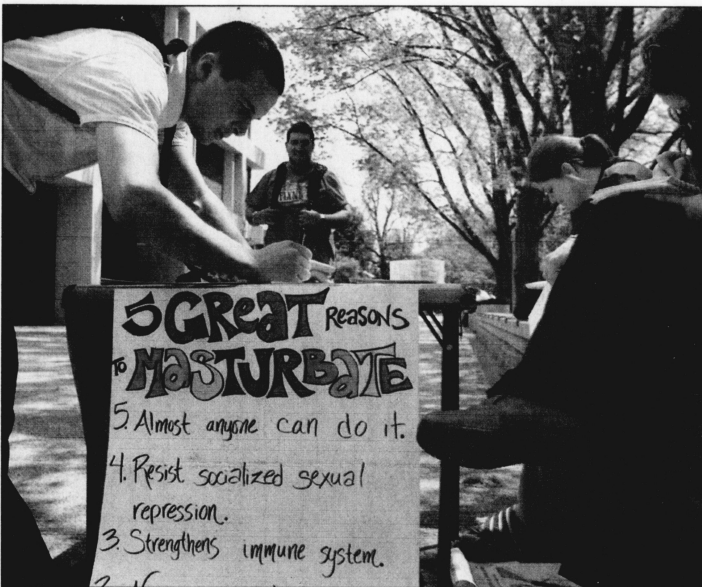 5 GREAT REASONS
TO MASTURBATE
5. Almost anyone can do it.
4. Resist socialized sexual
repression.
3. Strengthens immune system.